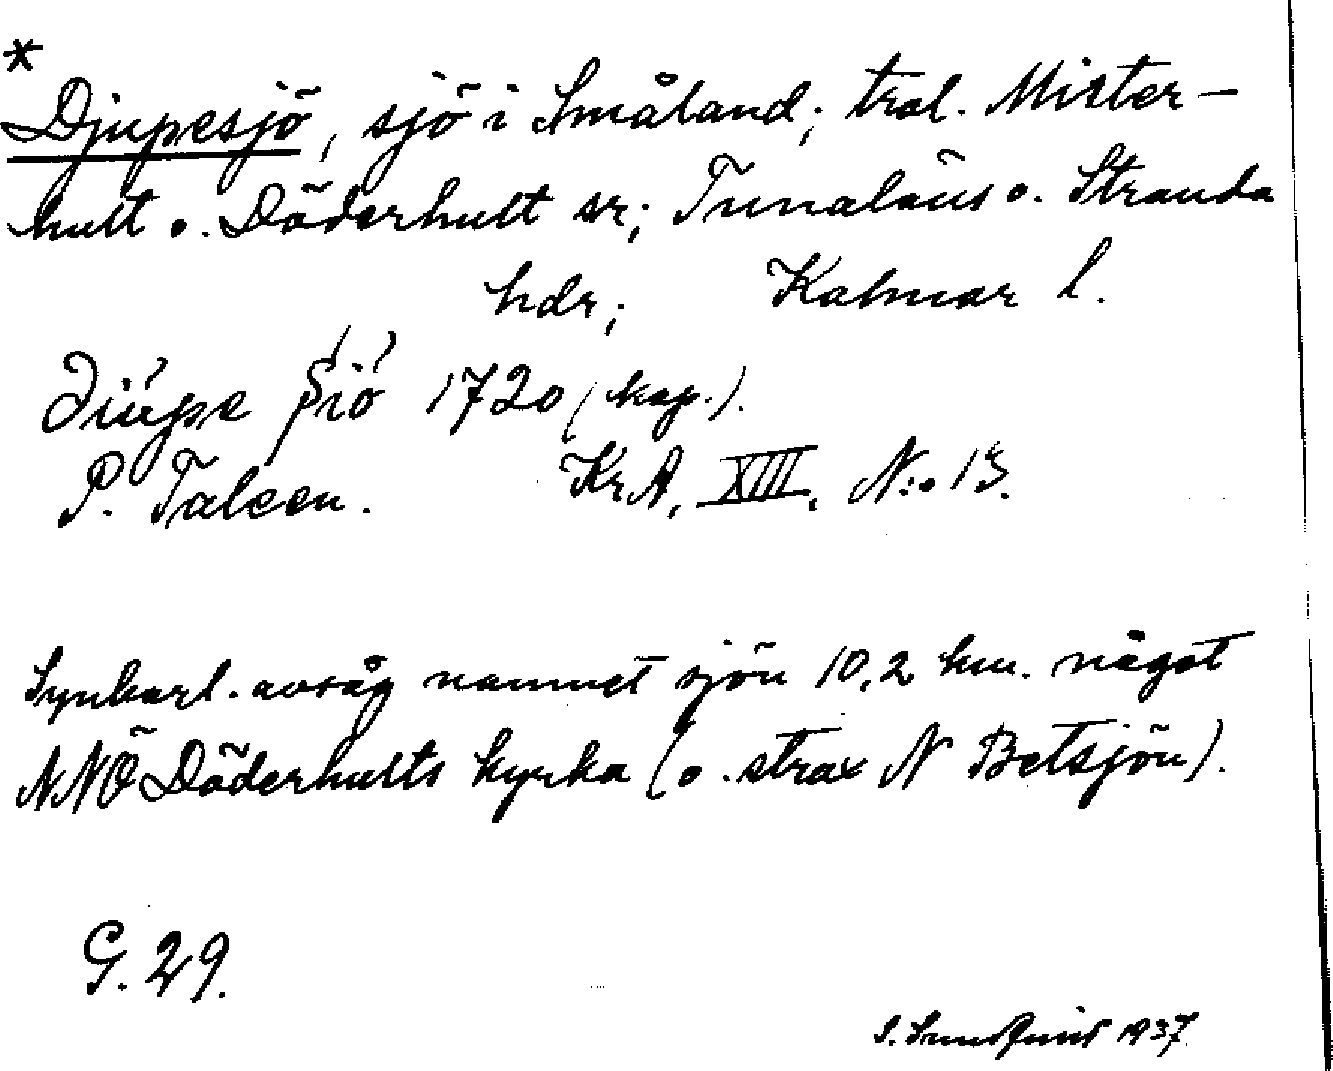 *
Djupesjö, sjö i Småland; trol. Mister-
hult o. Döderhult sr; Tunaläns o. Stranda
hdr; Kalmar l.
Diúpe Siö 1720 (kop.).
P. Taleen. KrA, XIII, N:o 13.
Synbarl. avsåg namnet sjön 10,2 km. något
NNÖ Döderhults kyrka (o. strax N Betsjön).
G. 29.
S. Sundquist 1937